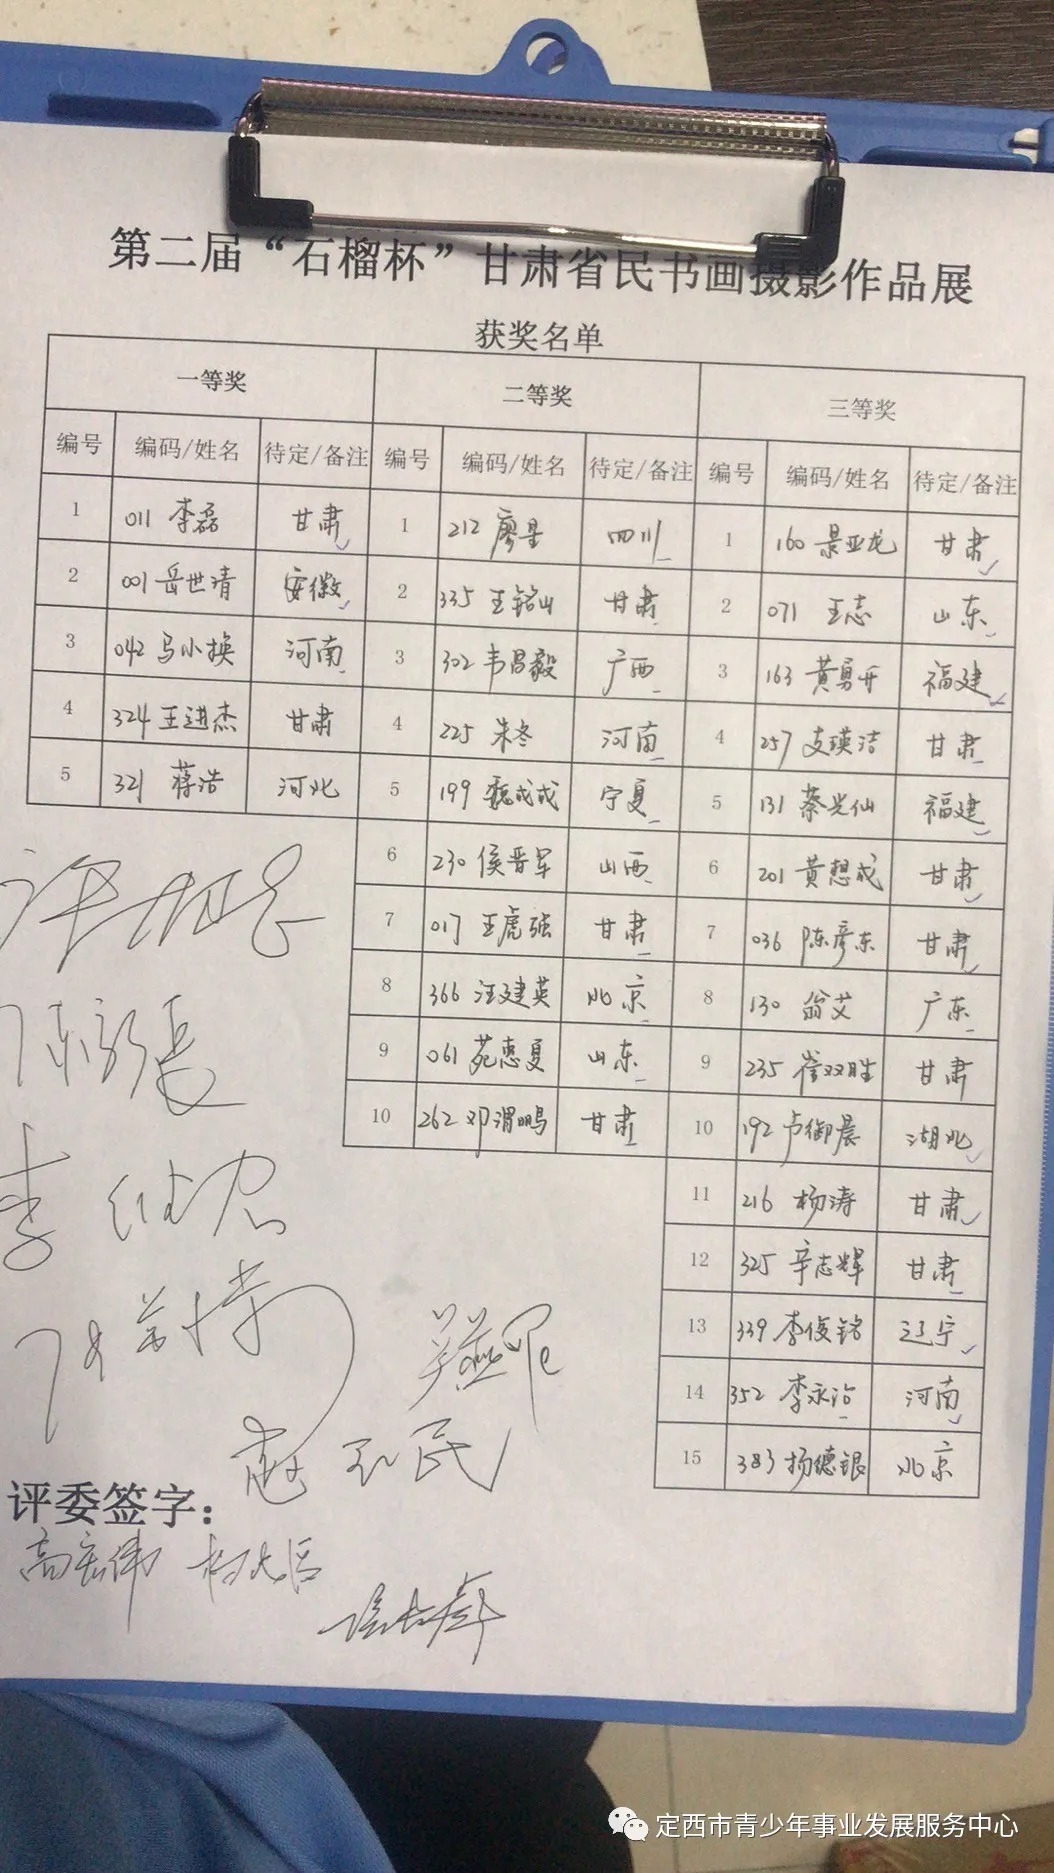 第二届“石榴杯”甘肃省民书画摄影作品展
获奖名单
一等奖 二等奖 三等奖
编号 编码/姓名 待定/备注 编号 编码/姓名 待定/备注 编号 编码/姓名 待定/备注
1 011 李磊 甘肃 1 212 廖星 四川 1 160 景亚龙 甘肃
2 001 岳世清 安徽 2 335 王铭山 甘肃 2 071 王志 山东
3 042 马小换 河南 3 302 韦昌毅 广西 3 163 黄勇开 福建
4 324 王进杰 甘肃 4 225 朱冬 河南 4 257 支瑛洁 甘肃
5 321 蒋浩 河北 5 199 魏成成 宁夏 5 131 蔡光仙 福建
6 230 侯晋军 山西 6 201 黄想成 甘肃
7 017 王虎强 甘肃 7 036 陈彦东 甘肃
8 366 汪建英 北京 8 130 翁艾 广东
9 061 苑惠夏 山东 9 235 崔双胜 甘肃
10 262 邓渭鹏 甘肃 10 192 卢御晨 湖北
11 216 杨涛 甘肃
12 325 辛志辉 甘肃
13 339 李俊铭 辽宁
14 352 李永治 河南
15 383 杨德银 北京
评委签字：
高宏伟
定西市青少年事业发展服务中心